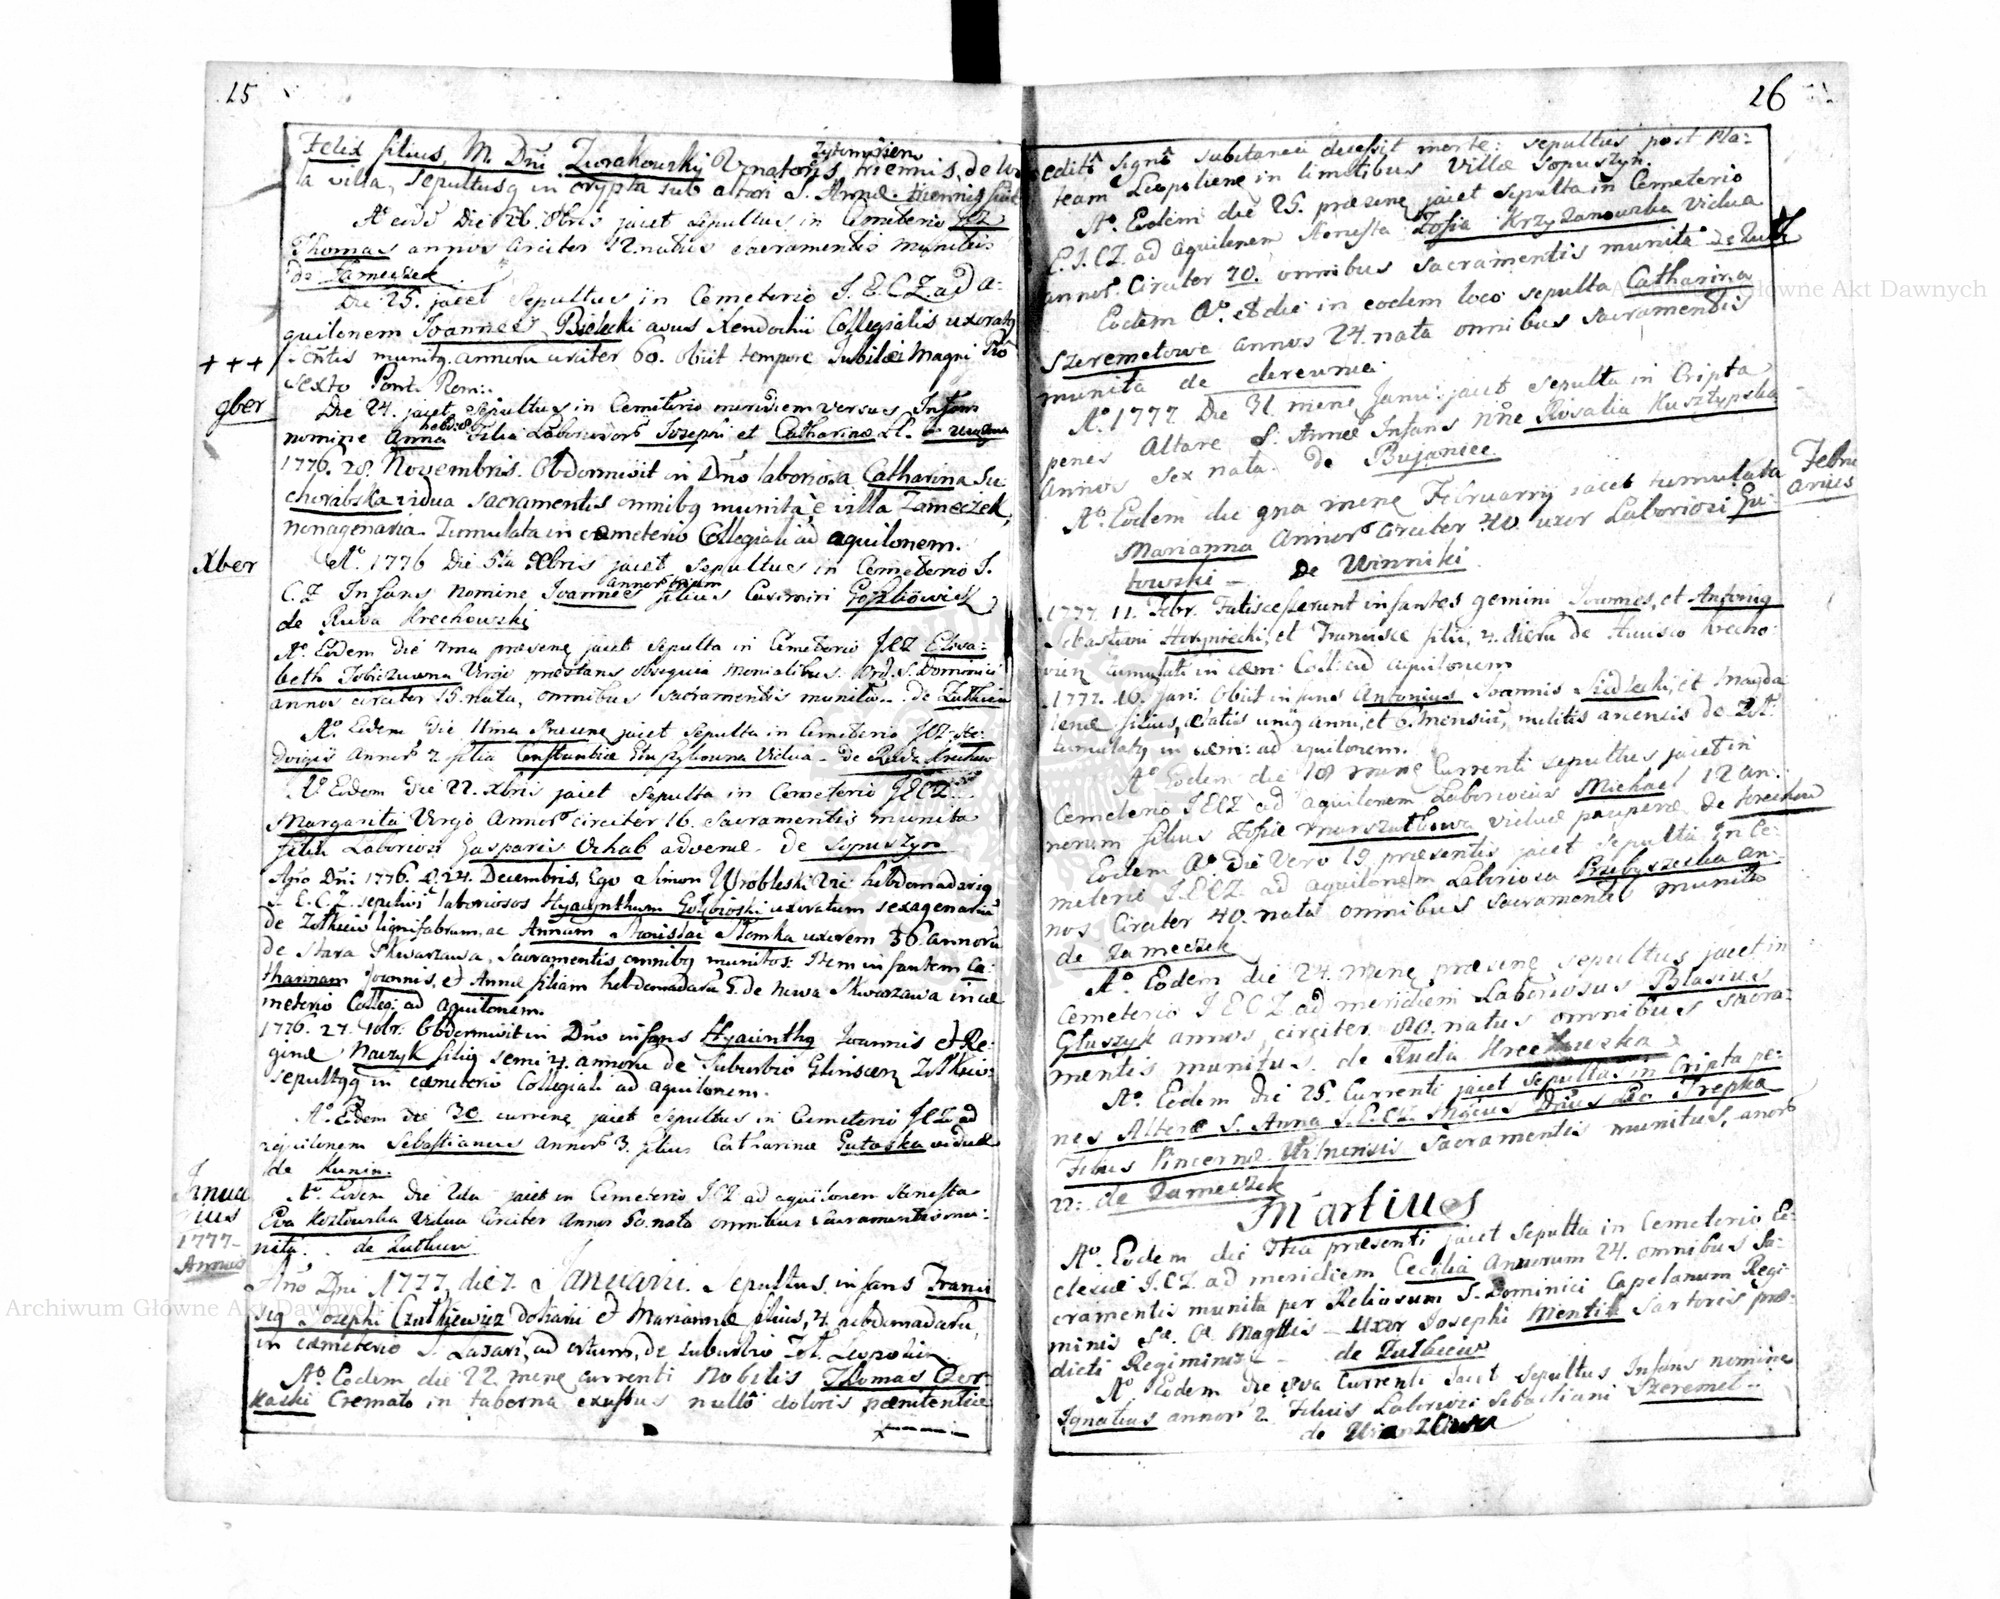 25
Felix filius M. Dni Zurakowskij Venatoris Zytomirien triennis, de
la villa, sepultusq in crypta sub altari S. Annæ. triennis
Aº eodẽ Die 26. 8bris jacet sepultus in Cemeterio JCZ
Thomas annos circiter 12. natus sacramentis munitus
de Zameczek
Die 25. jacet sepultus in Cemeterio I. E. C. Z. ad a-
quilonem Joannes Bielecki avus Xendochii Collegialis uxoratq
munitq annorũ circiter 60. obiit tempore Jubilæi Magni Pio
Sexto Pont: Rom:.
+++
9ber
Die 24. jacet sepultus in Cemeterio meridiem versus Infans
nomine Anna hebd: 8 filia Laboriosorũ Josephi et Catharinæ
1776. 28. Novembris. Obdormivit in Dño laboriosa Catharina Su-
chorabska vidua sacramentis omnibq munita, è villa Zameczek,
nonagenaria. Tumulata in cœmeterio Collegiali ad aquilonem.
Xber
Aº. 1776 Die 5ta Xbris jacet sepultus in Cemeterio I.
C. Z Infans nomine Joannes annor trium filius Casimiri
de Ruda Krechowski
Aº. Eodem die 7ma præsenę jacet sepulta in Cemeterio JCZ Elisa-
beth Virgo præstans obsequia Monialibus Ord. S. Dominici
annos circiter 15. nata, omnibus sacramentis munita.. de Zulkiew
Aº. Eodem die 11ma Præsenę jacet sepulta in Cemeterio JCZ He-
dvigis annorũ 2 filia Constantiæ Vidua - de Ruda
Aº Eodem Die 22. Xbris jacet sepulta in Cemeterio JECZ
Margarita Virgo Annorũ circiter 16. Sacramentis munita
filia Laboriosi Gasparis Vchab advenæ. de Sopuszyn
Año Dñi 1776. D. 24. Decembris, Ego Simon Wrobleski Vic: hebdomadariq
I. E. C. Z. sepelivi laboriosos Hyacynthum uxoratum sexagenariũ
de Zolkiew lignifabrum, ac Annam Stanislai Slomka uxorem 36. annorũ
de Stara Skwarzawa, Sacramentis omnibq munitos: Item infantem Ca-
tharinam Joannis, et Annæ filiam hebdomadarũ 5. de nowa Skwarzawa in cæ
meterio Colleg: ad Aquilonem.
1776. 27. 10br: Obdormivit in Dño infans Hyacinthq Joannis et Re-
ginæ Naczyk filiq semi 4. annorũ de Suburbio Glinscen Zolkiew:
sepultqq in cæmeterio Collegiali ad aquilonem.
Aº. Eodem die 30 currenę jacet sepultus in Cemeterio JCZ ad
aquilonem Sebastianus annorũ 3. filius Catharinæ Gutoska viduæ
de Kunin.
Janua
rius
1777-
Annus
Aº. Eodem Die jacet in Cemeterio JCZ ad aquilonem Honesta
Eva Kozlowska Vidua Circiter Annos 60. nata omnibus Sacramentis mu-
nita. de Zulkiew
Año Dni 1777. die 7. Januarii. Sepultus infans Franci
siq Josephi doliarii et Mariannæ filius, 4. hebdomadarũ,
in cæmeterio S. Lazari, ad ortum, de suburbio Zol. Leopolien.
Aº. Eodem die 22 menę currenti Nobilis Thomas Czer-
kaski Cremato in taberna exustus nullô doloris pænitentiæ
26
editô Signô substaneâ decessit morte: sepultus post Pla-
team Leopolienę in limitibus Villæ Sopuszyn.
Aº. Eodem die 25. præsenę jacet sepulta in Cemeterio
E. J. CZ. ad aquilonem Honesta Zofia Krzyzanowska Vidua
annorũ Circiter 70. omnibus sacramentis munita de
Eodem Aº. et die in eodem loco sepulta Catharina
Szeremetowa annos 24. nata omnibus sacramentis
munita de derewnia
Aº. 1777 Die 31 menę Janu: jacet sepulta in Cripta
penes Altare S. Annæ Infans nñe Rosalia Kusztypska
Annos sex nata. de Bujaniec
Febru
arius
Aº. Eodem die 9na menę Februarij jacet tumulata
Marianna Annorũ Circiter 40. uxor Laboriosi Gu-
towski - De Winniki
1777. 11. Febr. Fatiscesserunt infantes gemini Joannes, et Antoniq
Sebastiani Horyniecki, et Franciscæ filii, 4. dierũ de Krecho-
wien tumulati in cæm: Coll: ad aquilonem
1777. 16. Jan: Obiit infans Antonius Joannis Siedlecki, et Magda
lenæ filius, ætatis uniq anni, et 6. mensiũ, militis arcensis de Zol.
tumulatq in cæm: ad aquilonem.
Aº Eodem die 18 menę Currenti sepultus jacet in
Cemeterio J E C Z ad aquilonem Laboriosus Michael 12 an-
norum filius Zofiæ viduæ pauperæ de
Eodem Aº. Die Vero 19. præsentis jacet sepulta in Ce-
meterio J. E C Z ad aquilonem Laboriosa Przybyszeska an-
nos Circiter 40. nata omnibus sacramentis munita
de Zameczek
Aº. Eodem die 24. menę præsenę sepultus jacet in
Cemeterio J E C Z ad meridiem Laboriosus Blasius
Gluszyk annos circiter 80. natus omnibus sacra-
mentis munitus. de Ruda Krechowska
Aº. Eodem die 25. Currenti jacet sepultus in Cripta pe-
nes Altare S. Anna I. E. CZ. Mgcus Dñus Leo Trepka
Filius Pincernæ Vilnensis Sacramentis munitus, anorũ
22: de Zameczek
Martius
Aº. Eodem die 7tia præsenti jacet sepulta in Cemeterio Ec-
clesiæ J. CZ. ad meridiem Cecilia Annorum 24. omnibus Sa-
cramentis munita per Religiosum S. Dominici Capelanum Regi-
minis Sæ. Cæ. Magttis - Uxor Josephi Mentik Sartoris præ-
dicti Regiminis - de Zulkiew
Aº Eodem die 8va Currenti Jacet sepultus Infans nomine
Ignatius annorũ 2 Filius Laboriosi Sebastiani Szeremet..
de
Archiwum Główne Akt Dawnych
Archiwum Główne Akt Dawnych